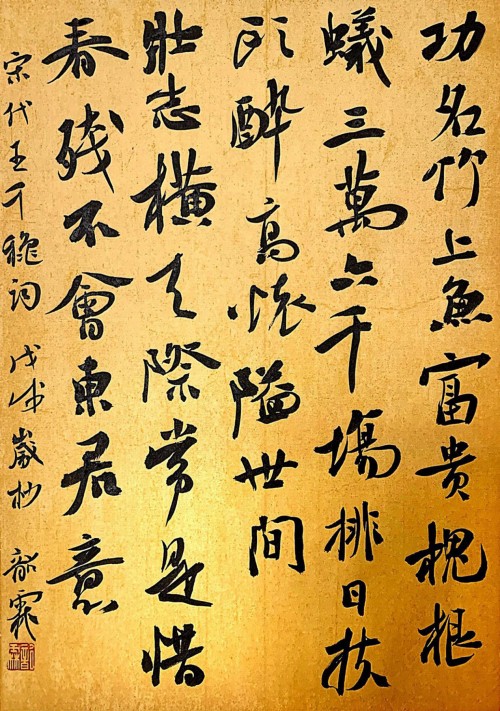 功名竹上魚富贵槐根
蟻三萬六千場排日扶
頭醉高懷隘世间
壯志橫天際常是惜
春残不會東君意
宋代王千穐词 戊戌歲杪 霖